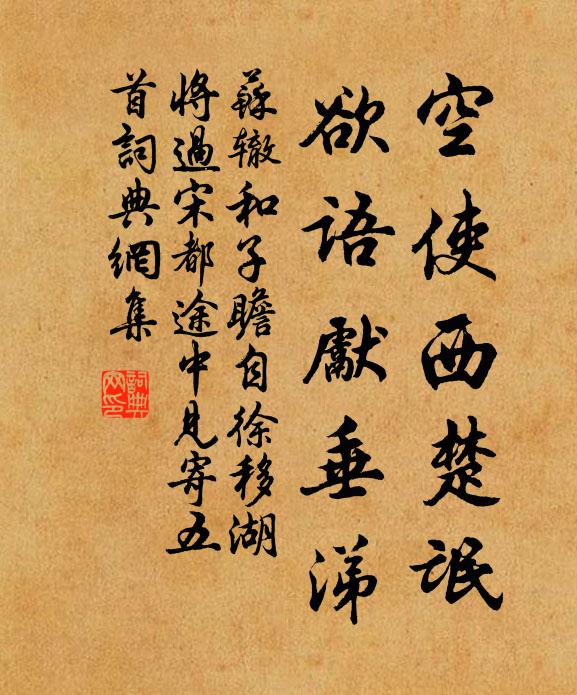 空使西楚氓
欲語獻垂涕
蘇辙和子瞻自徐移湖
將過宋都途中見寄五
首詞典網集
詞典网印